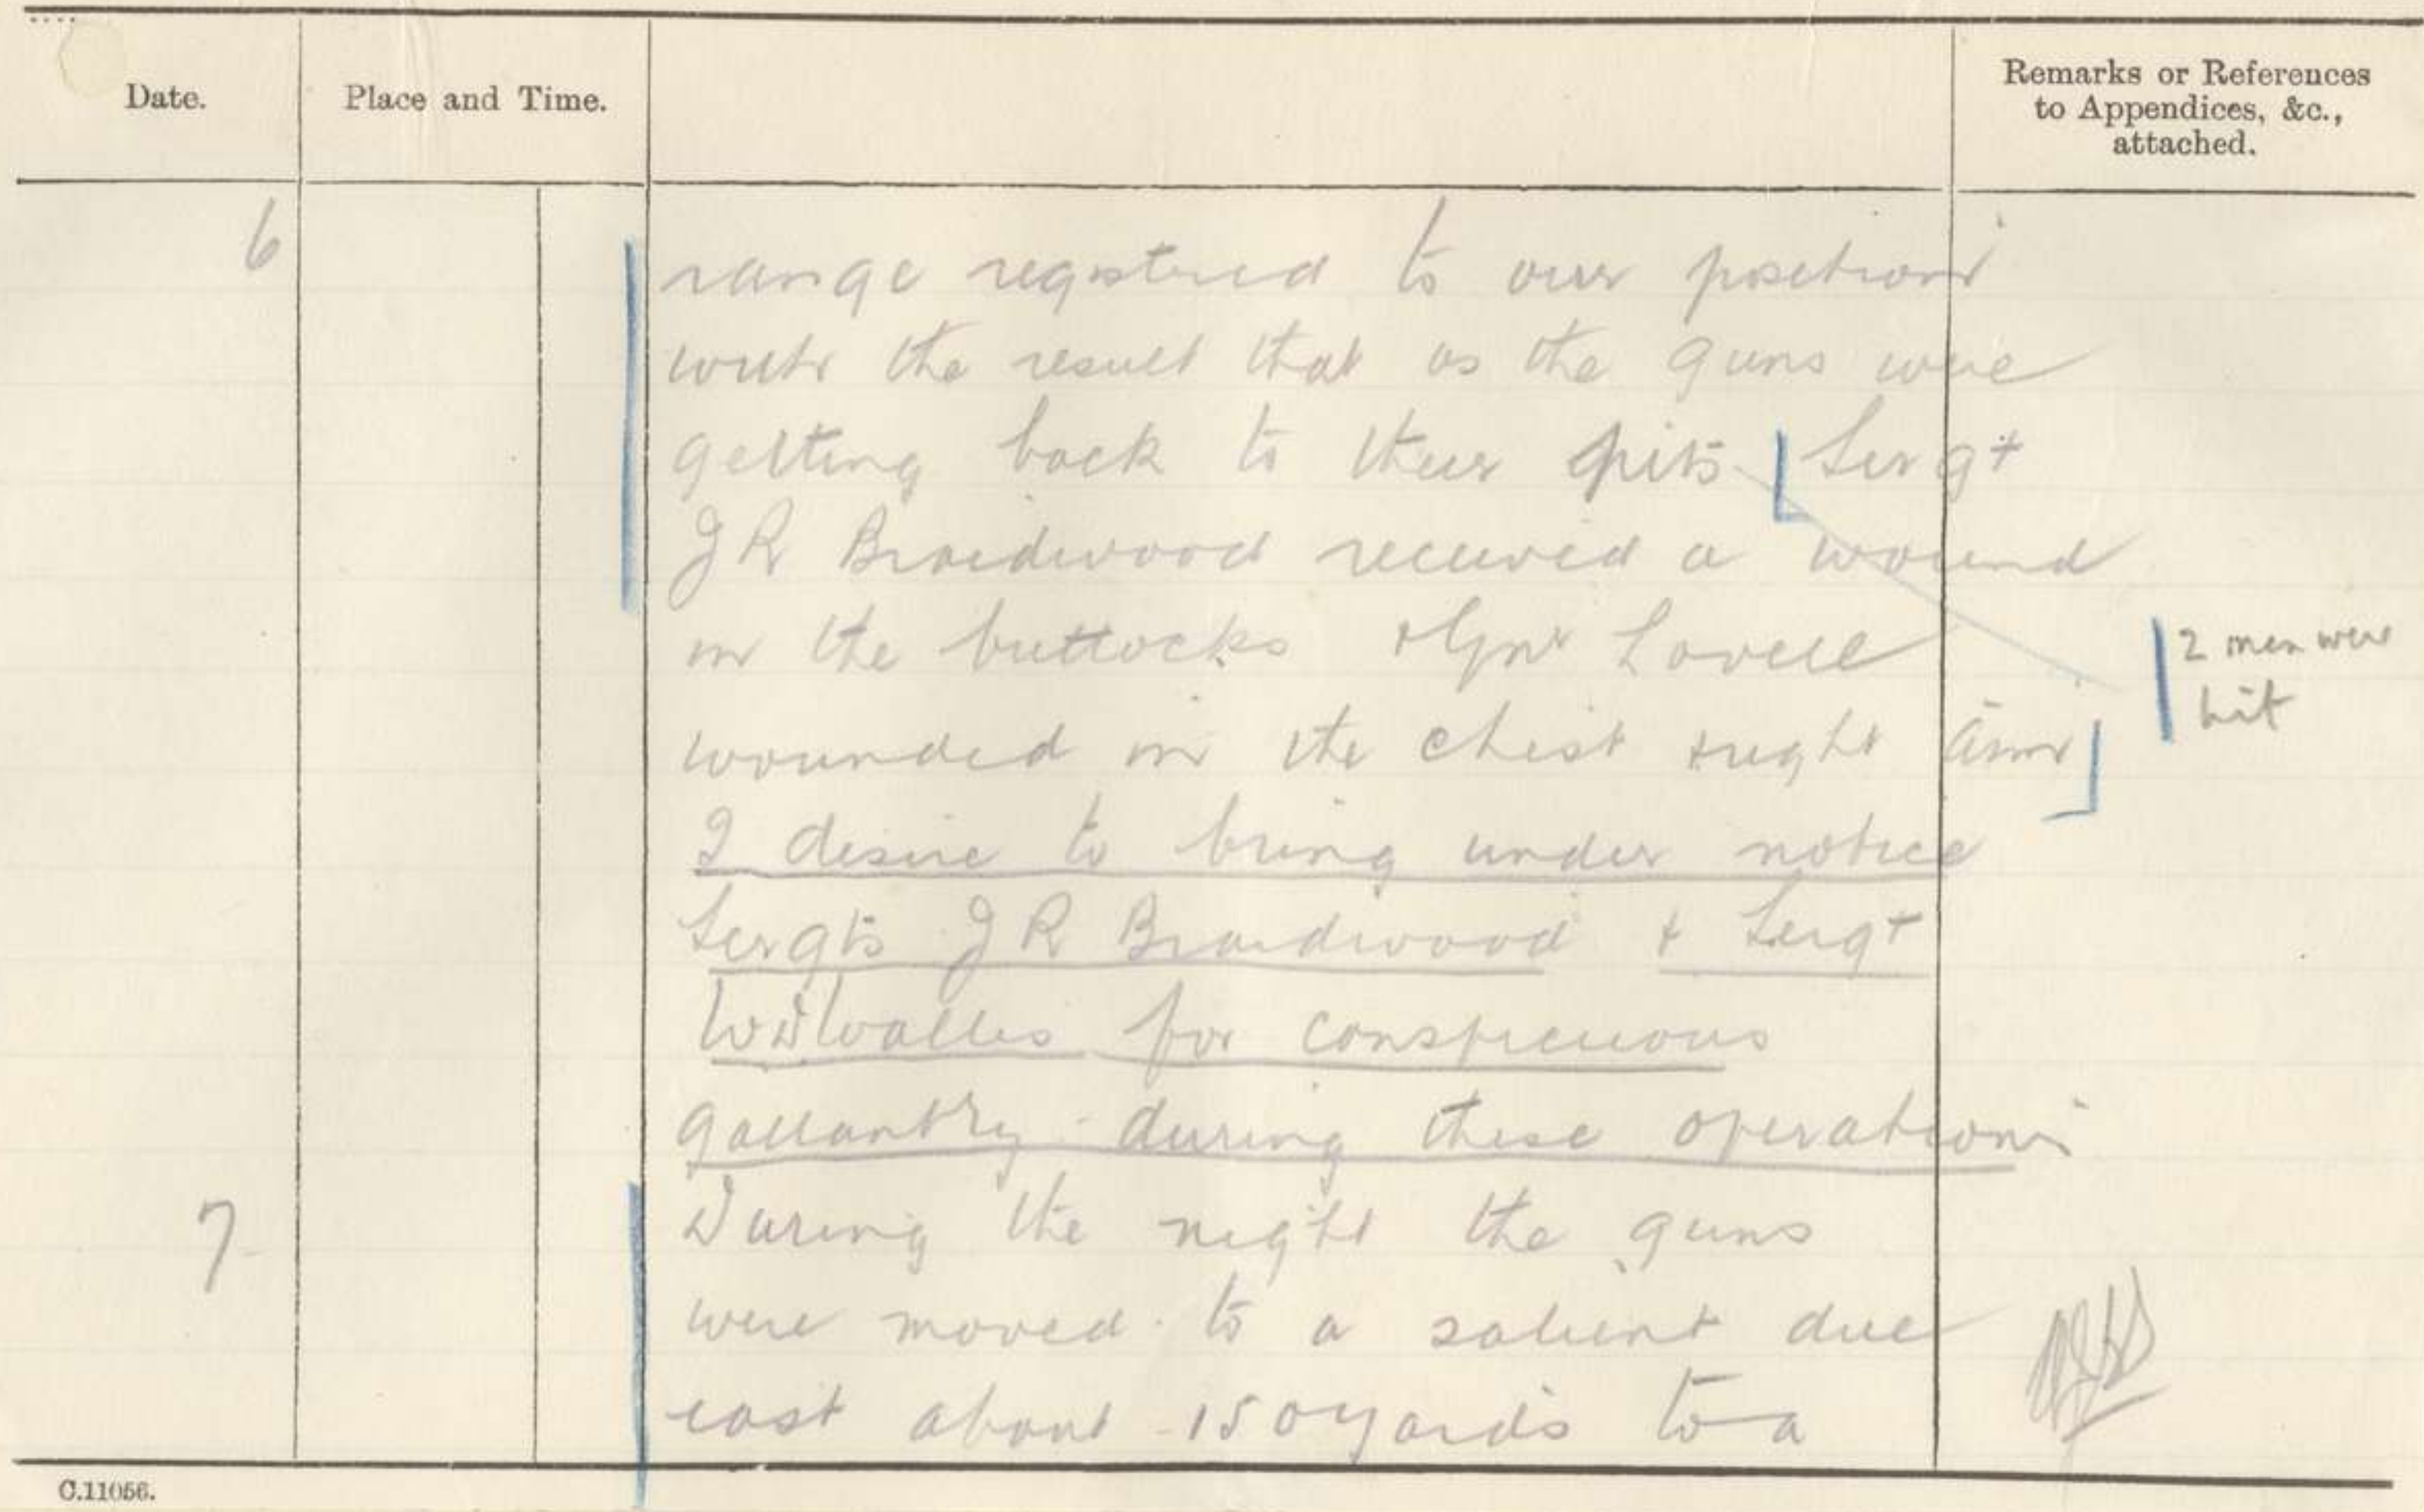 Date.
Place and Time.
Remarks or References
to Appendices, &c.,
attached.
6
range registered to our positions
with the result that as the guns were
getting back to their pits Sergt
J R Braidwood received a wound
in the buttocks & Gnr Lovell
2 men were
hit
wounded in the chest & right arm
I desire to bring under notice
Sergts J R Braidwood & Sergt
W D Wallis for conspicuous
gallantry during these operations
7
During the night the guns
were moved to a salient due
east about 150 yards to a
C.11056.